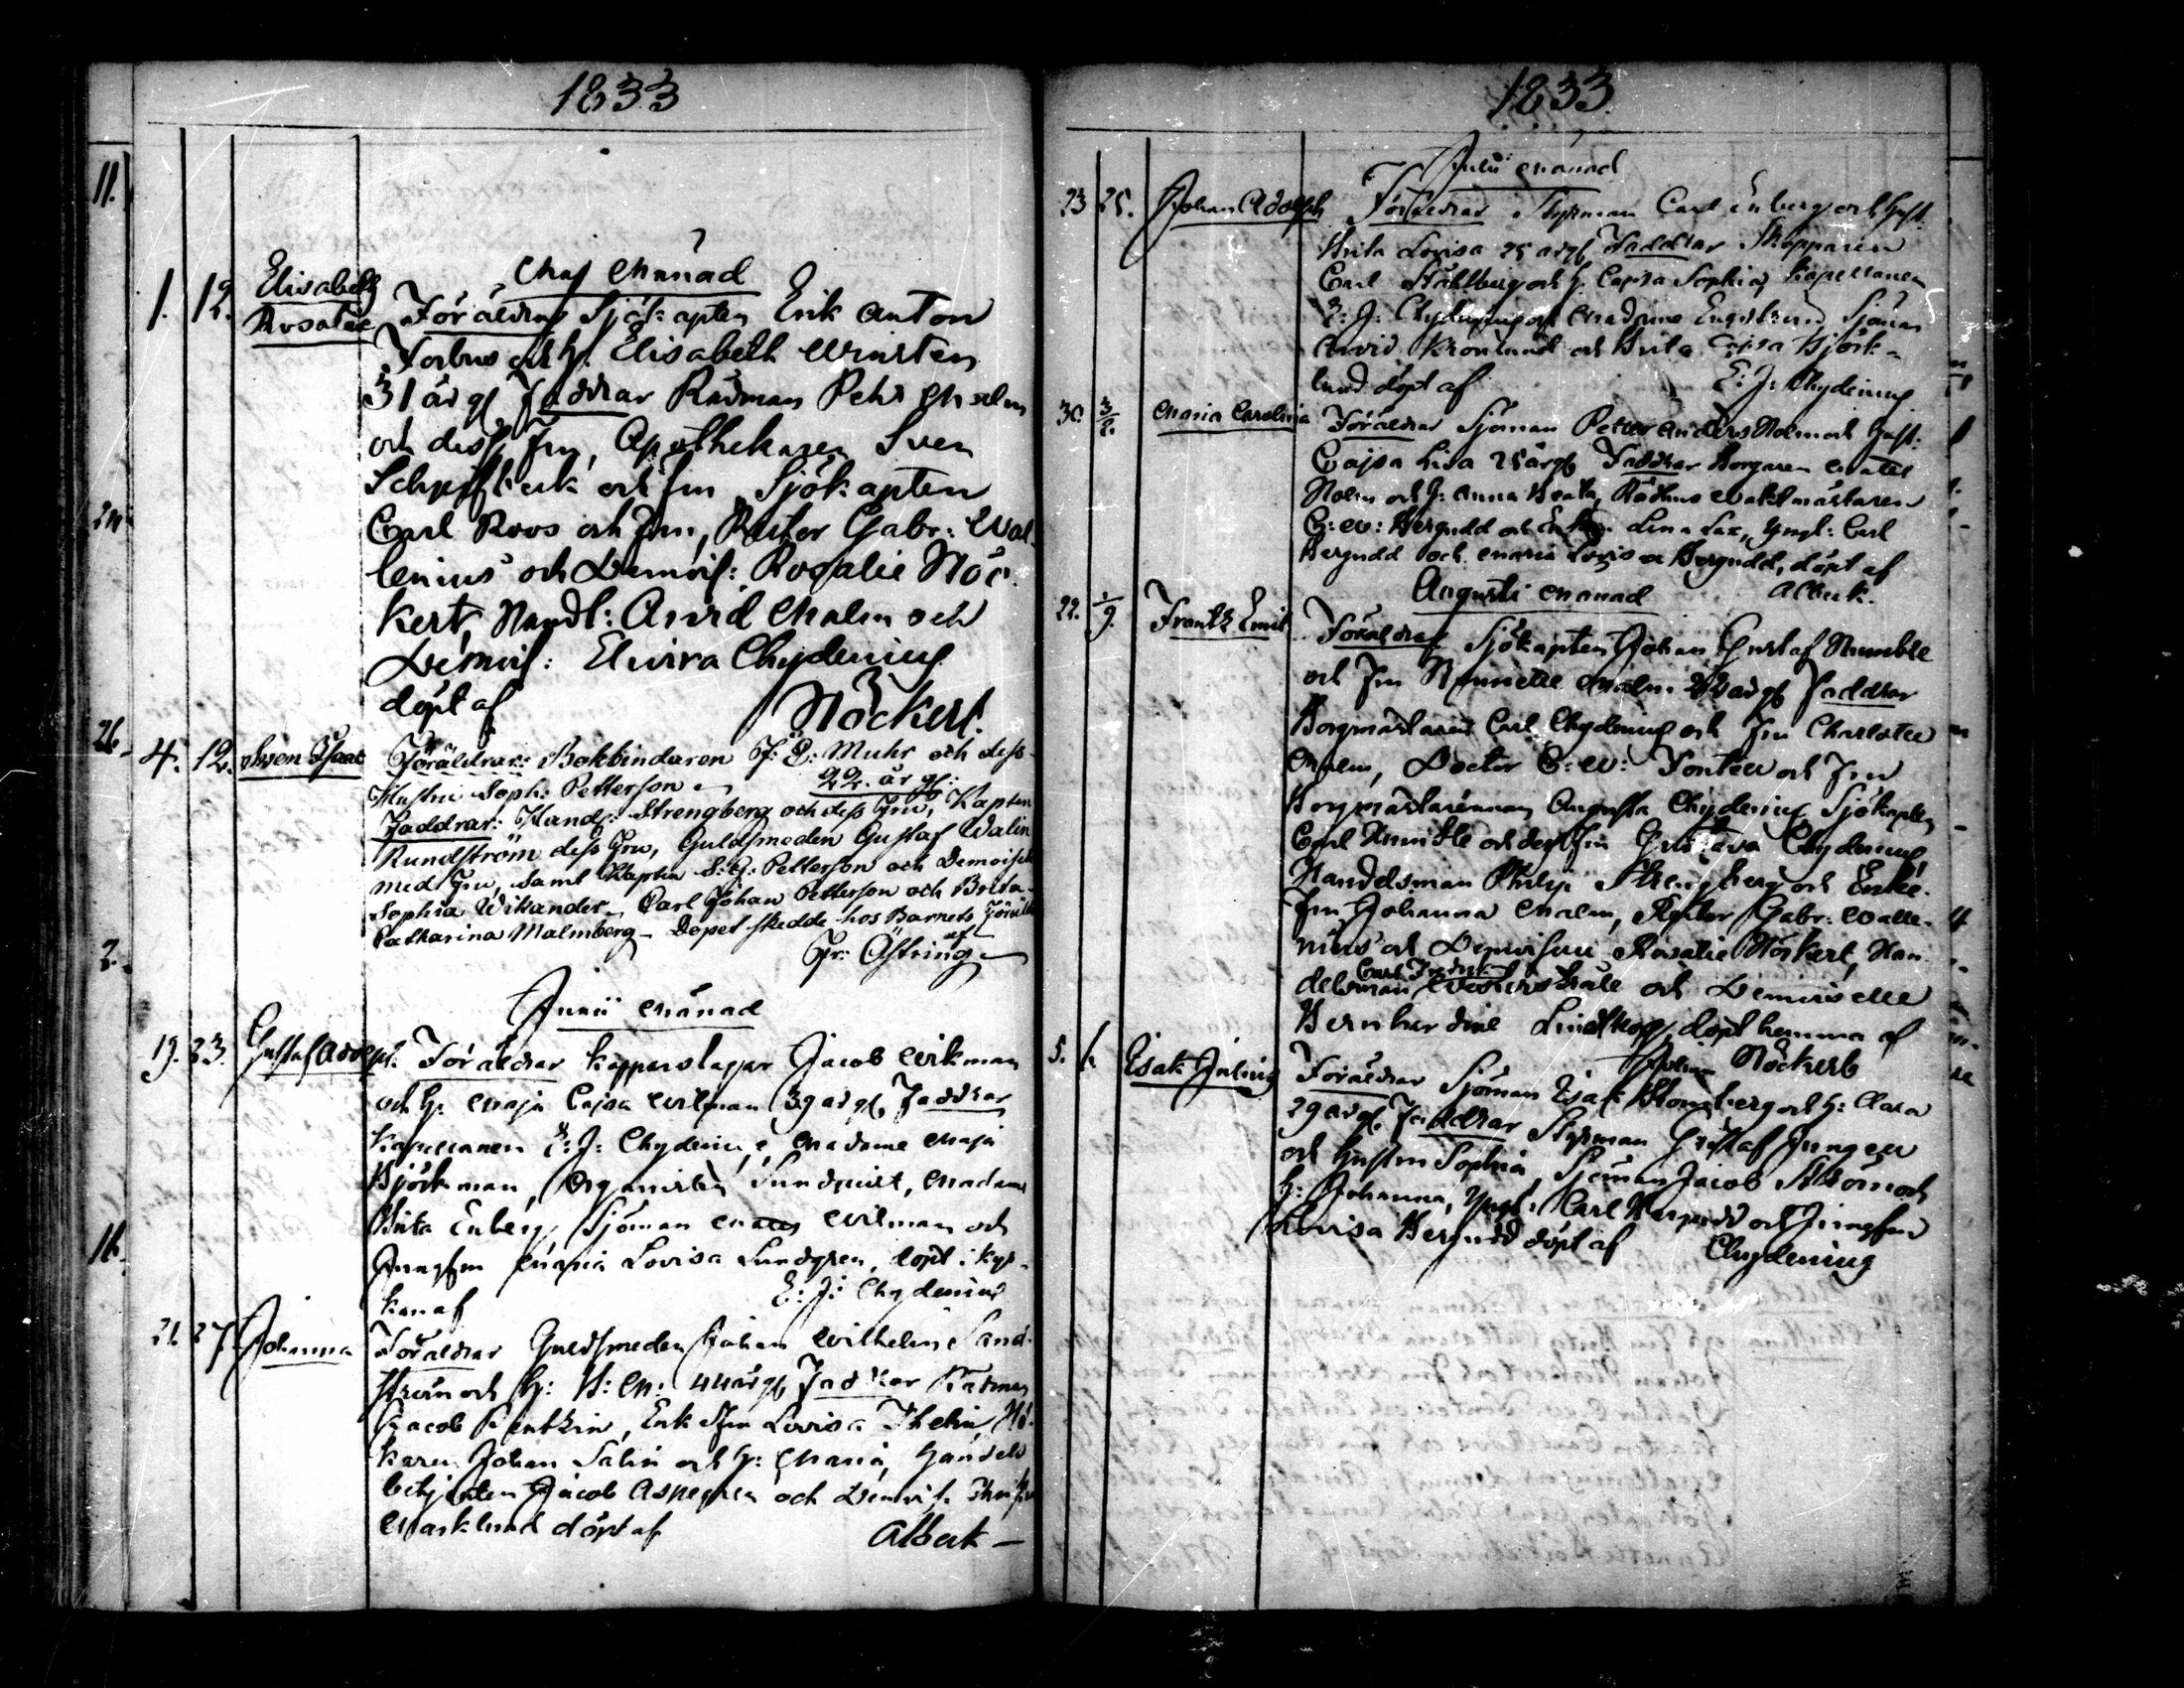 1833
Maj Månad
1. 12. Elisabeth Rosalie
Föräldrar Sjökapten Erik Anton
Forbus och h. Elisabeth
31 år gl. Faddrar Rådman Pehr Malm
och dess Fru, Apothekaren Sven
och Fru Sjökapten
Carl Roos och Fru, Rector Gabr: Wal-
lenius och Demois: Rosalie Nöc-
kert, Handl: Arvid Malm och
Demois: Elvira Chydenius
döpt af Nöckert.
4. 12. Sven Isaac
Föräldrar: Bokbindaren Muhr och dess
Hustru Soph: Petterson 22. år gl:
Faddrar: Handl: Strengberg och dess Fru, Kapten
Rundström dess Fru, Guldsmeden Gustaf Walin
med Fru, samt Kapten S: G: Petterson och Demoiselle
Sophia Wikander – Carl Johan Petterson och Brita
Catharina Malmberg – Dopet skedde hos Barnets Föräldr
af
Fr: Östring
Junii Månad
19. 23. Gustaf Adolph.
Föräldrar Kopparslagar Jacob Wikman
och h. Maja Cajsa Wikman 39 år gl, Faddrar
Kapellanen E: J: Chydenius, Madame Maja
Björkman, Organisten Sundqvist, Madame
Brita Enberg, Sjöman Matts Wikman och
Jungfru Maria Lovisa Lundgren, döpt i kyr-
kan af E: J: Chydenius
21. 27. Johanna
Föräldrar Guldsmeden Johan Wilhelm Sand-
ström och h: H: M: 44 år gl, Faddrar Rådman
Jacob Enk Fru Lovisa Thelin, Hö-
karen Johan Salin och h: Maria, Handels
betjenten Jacob Aspegren och Demois.
Marklund döpt af Alceek –
1833.
Julii Månad
23 25. Johan Adolph
Föräldrar Styrman Carl Enberg och Hust.
Brita Lovisa 25 år gl, Faddrar Skepparen
Carl Ståhlberg och h. Cajsa Sophia, Kapellanen
E: J: Chydenius och Madame Englund, Sjöman
Arvid Kronlund och Brita Cajsa Björk-
lund döpt af E: J: Chydenius
30. 3/8. Maria Carolina
Föräldrar Sjöman Petter Anders Holm och Hust:
Cajsa Lisa 25 år gl Faddrar Borgaren Matts
Holm och h: Anna Beata, Rådhus Waktmästaren
C: W: Bergudd och Enkan Lena Lax, Yngl: Carl
Bergudd och Maria Lovisa Bergudd, döpt af
Alceek.
Augusti Månad
22. 1/9. Frantz Emil
Föräldrar Sjökapten Johan Gustaf Humble
och Fru Annette Malm 22 år gl Faddrar
Borgmästaren Carl Chydenius och Fru Charlotte
Malm, Doctor C: W: Fontell och Fru
Borgmästarinnan Augusta Chydenius, Sjökapten
Carl Humble och dess Fru Gustava Chydenius,
Handelsman Philip Strengberg och Enke-
Fru Johanna Malm, Rector Gabr: Walle-
nius och Demoiselle Rosalie Nöckert, Han-
delsman Carl Fredrik och Demoiselle
Bernhardine Lindskog, döpt hemma af
Johan Nöckert
5. 6. Esak Julius
Föräldrar Sjöman Esak Blomberg och h: Clara
29 år gl, Faddrar Styrman Gustaf Jungell
och Hustru Sophia, Sjöman Jacob Ström och
h: Johanna, Yngl: Carl Bergudd och Jungfru
Lovisa Bergudd döpt af Chydenius